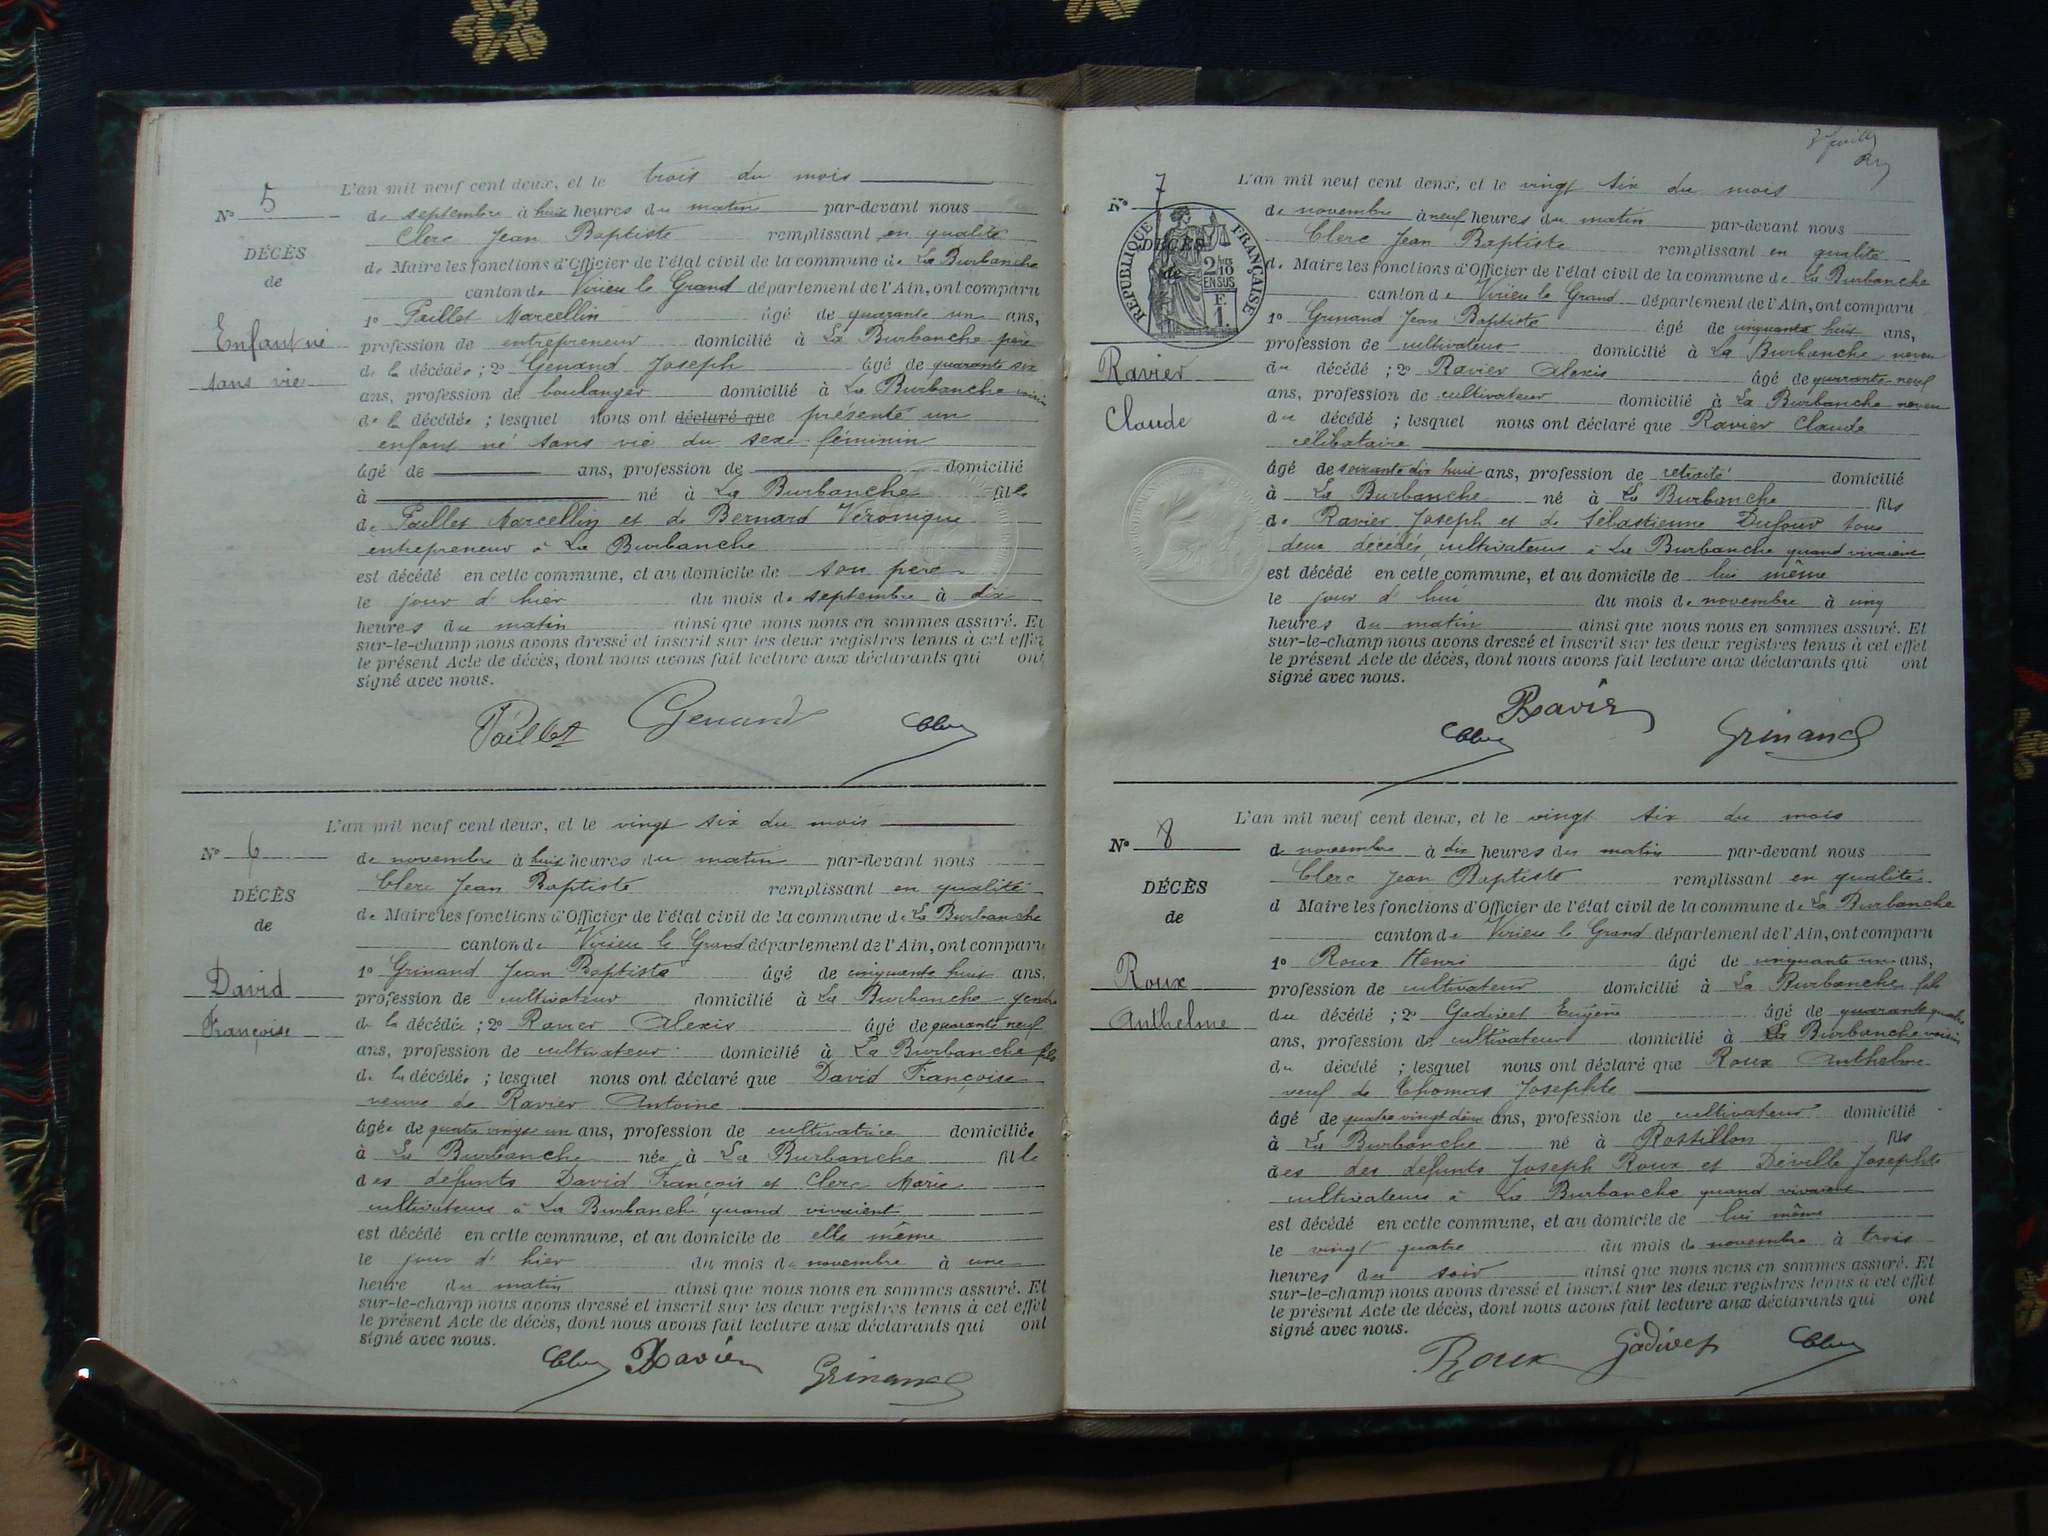 N° 5
DÉCÈS
de
Enfant né
sans vie
L'an mil neuf cent deux, et le trois du mois
de septembre à huit heures du matin par-devant nous
Clerc Jean Baptiste remplissant en qualité
de Maire les fonctions d'Officier de l'état civil de la commune de La Burbanche
canton de Virieu le Grand département de l'Ain, ont comparu
1° Paillet Marcellin âgé de quarante un ans,
profession de entrepreneur domicilié à La Burbanche père
de la décédée ; 2° Genand Joseph âgé de quarante six
ans, profession de boulanger domicilié à La Burbanche voisin
de la décédée ; lesquel nous ont déclaré que présenté un
enfant né sans vie du sexe féminin
âgé de ans, profession de domicilié
à né à La Burbanche fille
de Paillet Marcellin et de Bernard Véronique
entrepreneur à La Burbanche
est décédé en cette commune, et au domicile de son père
le jour d'hier du mois de septembre à dix
heures du matin ainsi que nous nous en sommes assuré. Et
sur-le-champ nous avons dressé et inscrit sur les deux registres tenus à cet effet
le présent Acte de décès, dont nous avons fait lecture aux déclarants qui ont
signé avec nous.
Paillet Genand Clerc
N° 6
DÉCÈS
de
David
Françoise
L'an mil neuf cent deux, et le vingt six du mois
de novembre à huit heures du matin par-devant nous
Clerc Jean Baptiste remplissant en qualité
de Maire les fonctions d'Officier de l'état civil de la commune de La Burbanche
canton de Virieu le Grand département de l'Ain, ont comparu
1° Grinand Jean Baptiste âgé de cinquante huit ans,
profession de cultivateur domicilié à La Burbanche gendre
de la décédée ; 2° Ravier Alexis âgé de quarante neuf
ans, profession de cultivateur domicilié à La Burbanche fils
de la décédée ; lesquel nous ont déclaré que David Françoise
veuve de Ravier Antoine
âgée de quatre vingt un ans, profession de cultivatrice domiciliée
à La Burbanche née à La Burbanche fille
des défunts David François et Clerc Marie
cultivateurs à La Burbanche quand vivaient
est décédé en cette commune, et au domicile de elle même
le jour d'hier du mois de novembre à une
heure du matin ainsi que nous nous en sommes assuré. Et
sur-le-champ nous avons dressé et inscrit sur les deux registres tenus à cet effet
le présent Acte de décès, dont nous avons fait lecture aux déclarants qui ont
signé avec nous.
Clerc Ravier Grinand
N° 7
DÉCÈS
de
RÉPUBLIQUE FRANÇAISE
2/10 EN SUS
F.
1.
Ravier
Claude
L'an mil neuf cent deux, et le vingt six du mois
de novembre à neuf heures du matin par-devant nous
Clerc Jean Baptiste remplissant en qualité
de Maire les fonctions d'Officier de l'état civil de la commune de La Burbanche
canton de Virieu le Grand département de l'Ain, ont comparu
1° Grinand Jean Baptiste âgé de cinquante huit ans,
profession de cultivateur domicilié à La Burbanche neveu
du décédé ; 2° Ravier Alexis âgé de quarante neuf
ans, profession de cultivateur domicilié à La Burbanche neveu
du décédé ; lesquel nous ont déclaré que Ravier Claude
célibataire
âgé de soixante dix huit ans, profession de retraité domicilié
à La Burbanche né à La Burbanche fils
de Ravier Joseph et de Sébastienne Dufour tous
deux décédés cultivateurs à La Burbanche quand vivaient
est décédé en cette commune, et au domicile de lui même
le jour d'hui du mois de novembre à cinq
heures du matin ainsi que nous nous en sommes assuré. Et
sur-le-champ nous avons dressé et inscrit sur les deux registres tenus à cet effet
le présent Acte de décès, dont nous avons fait lecture aux déclarants qui ont
signé avec nous.
Clerc Ravier Grinand
N° 8
DÉCÈS
de
Roux
Anthelme
L'an mil neuf cent deux, et le vingt six du mois
de novembre à dix heures du matin par-devant nous
Clerc Jean Baptiste remplissant en qualité
d Maire les fonctions d'Officier de l'état civil de la commune de La Burbanche
canton de Virieu le Grand département de l'Ain, ont comparu
1° Roux Henri âgé de cinquante un ans,
profession de cultivateur domicilié à La Burbanche fils
du décédé ; 2° Gadivet Eugène âgé de quarante quatre
ans, profession de cultivateur domicilié à La Burbanche voisin
du décédé ; lesquel nous ont déclaré que Roux Anthelme
veuf de Thomas Josephte
âgé de quatre vingt deux ans, profession de cultivateur domicilié
à La Burbanche né à Rossillon fils
des des défunts Joseph Roux et Déville Josephte
cultivateurs à La Burbanche quand vivaient
est décédé en cette commune, et au domicile de lui même
le vingt quatre du mois de novembre à trois
heures du soir ainsi que nous nous en sommes assuré. Et
sur-le-champ nous avons dressé et inscrit sur les deux registres tenus à cet effet
le présent Acte de décès, dont nous avons fait lecture aux déclarants qui ont
signé avec nous.
Roux Gadivet Clerc